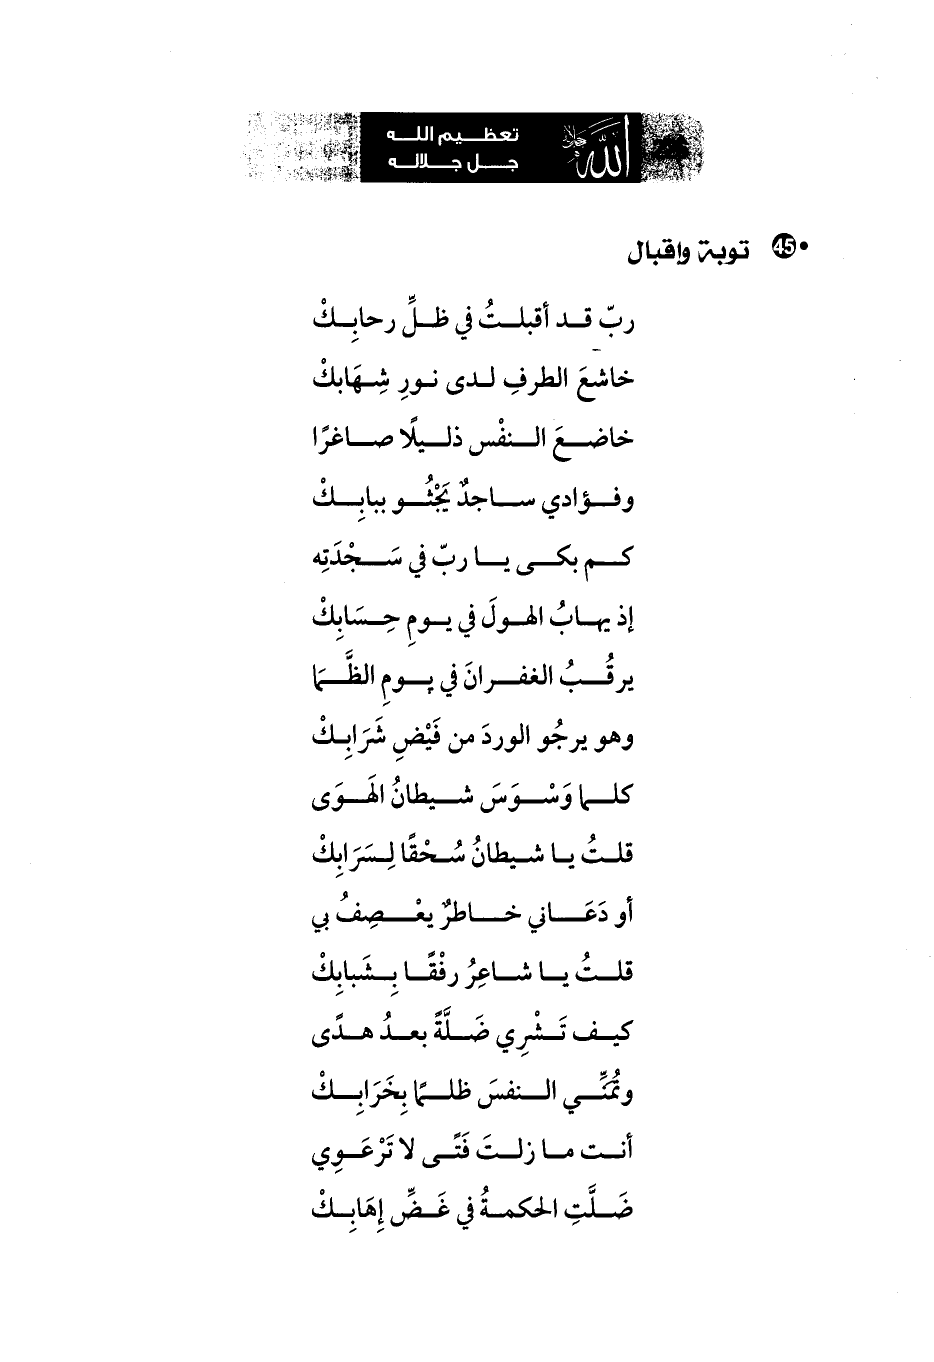 تعظيم الله
جل جلاله
الله جل جلاله
45 توبة وإقبال
ربّ قد أقبلتُ في ظلِّ رحابِكْ
خاشعَ الطرفِ لدى نورِ شِهَابكْ
خاضعَ النفْس ذليلًا صاغرًا
وفؤادي ساجدٌ يَجْثُو ببابِكْ
كم بكى يا ربّ في سَجْدَتِه
إذ يهابُ الهولَ في يومِ حِسَابِكْ
يرقُبُ الغفرانَ في يومِ الظَّمَا
وهو يرجُو الوردَ من فَيْضِ شَرَابِكْ
كلما وَسْوَسَ شيطانُ الهَوَى
قلتُ يا شيطانُ سُحْقًا لِسَرَابِكْ
أو دَعَاني خاطرٌ يعْصِفُ بي
قلتُ يا شاعِرُ رفْقًا بِشَبابِكْ
كيف تَشْرِي ضَلَّةً بعدُ هدًى
وتُمَنِّي النفسَ ظلمًا بِخَرَابِكْ
أنت ما زلتَ فَتًى لا تَرْعَوِي
ضَلَّتِ الحكمةُ في غَضِّ إهَابِكْ